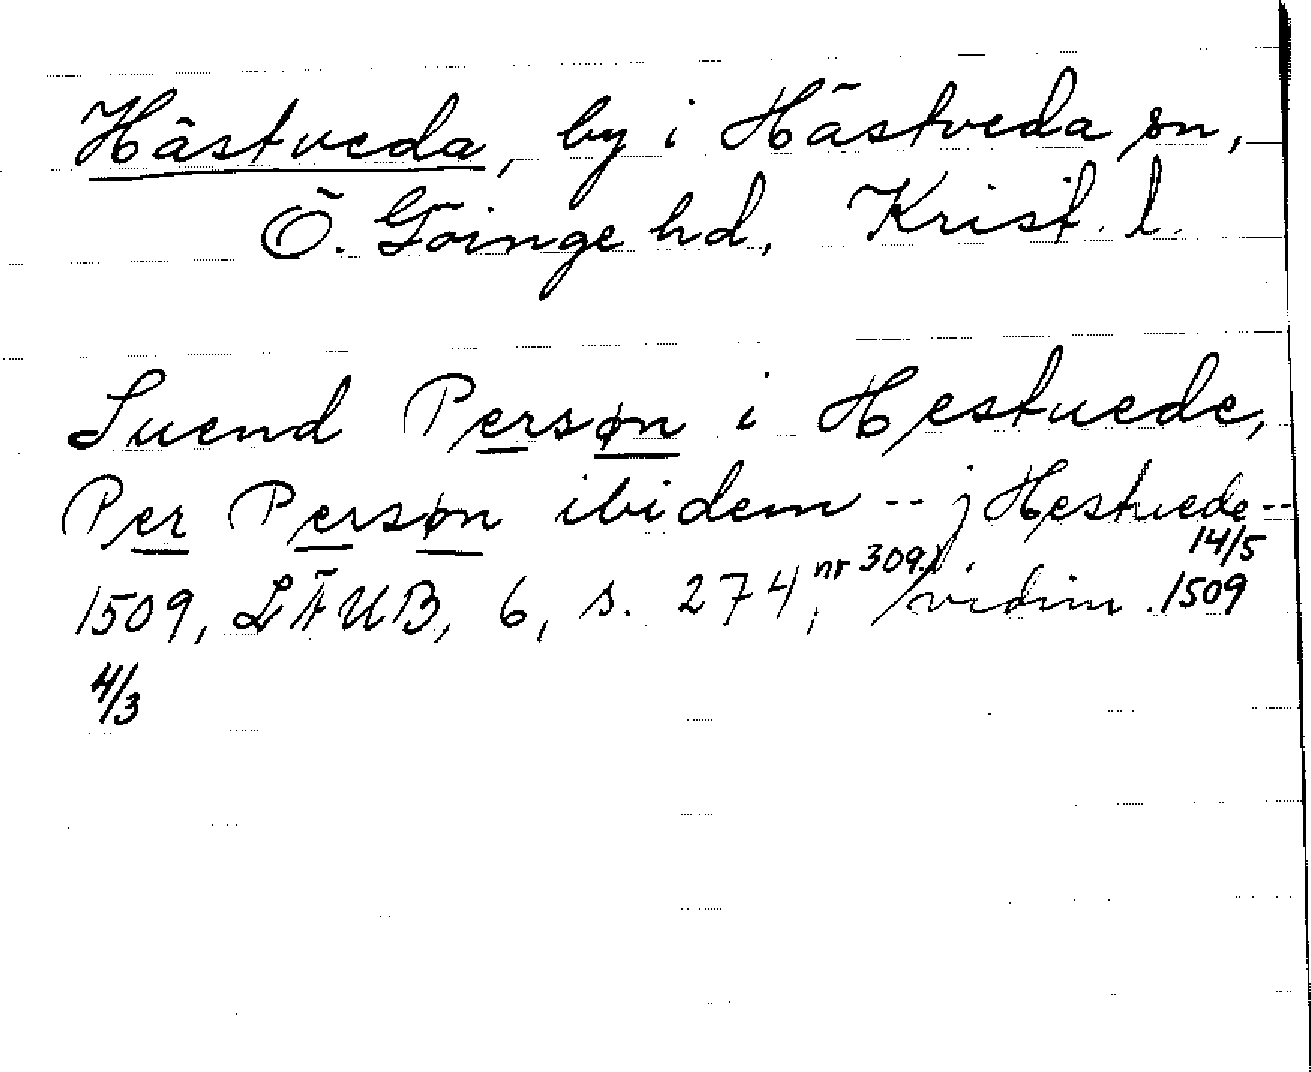 Hästveda, by i Hästveda sn,
Ö. Göinge hd, Krist. l.
Suend Persøn i Hestuede,
Per Persøn ibidem -- j Hestuede --
1509, LÄUB, 6, s. 274, nr 309. vidim. 14/5 1509
4/3